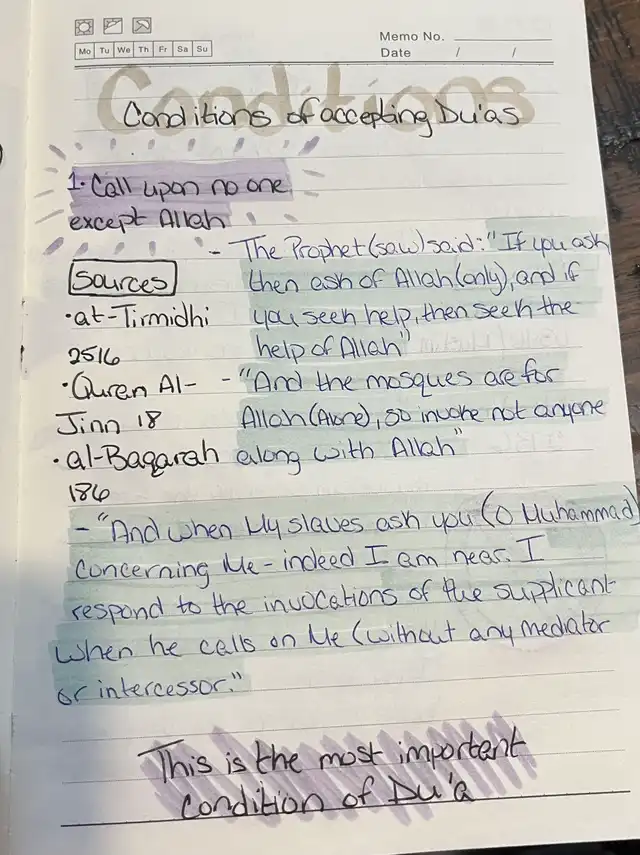 Memo No.
Mo Tu We Th Fr Sa Su
Date / /
Conditions
Conditions of accepting Du'as
1. Call upon no one
except Allah
- The Prophet (saw) said: "If you ask
then ask of Allah (only), and if
you seek help, then seek the
help of Allah"
Sources
• at-Tirmidhi
2516
• Quren Al-
Jinn 18
• al-Baqarah
186
- "And the mosques are for
Allah (Alone), so invoke not anyone
along with Allah"
- "And when My slaves ask you (O Muhammad)
concerning Me - indeed I am near. I
respond to the invocations of the supplicant
when he calls on Me (without any mediator
or intercessor."
This is the most important
Condition of Du'a